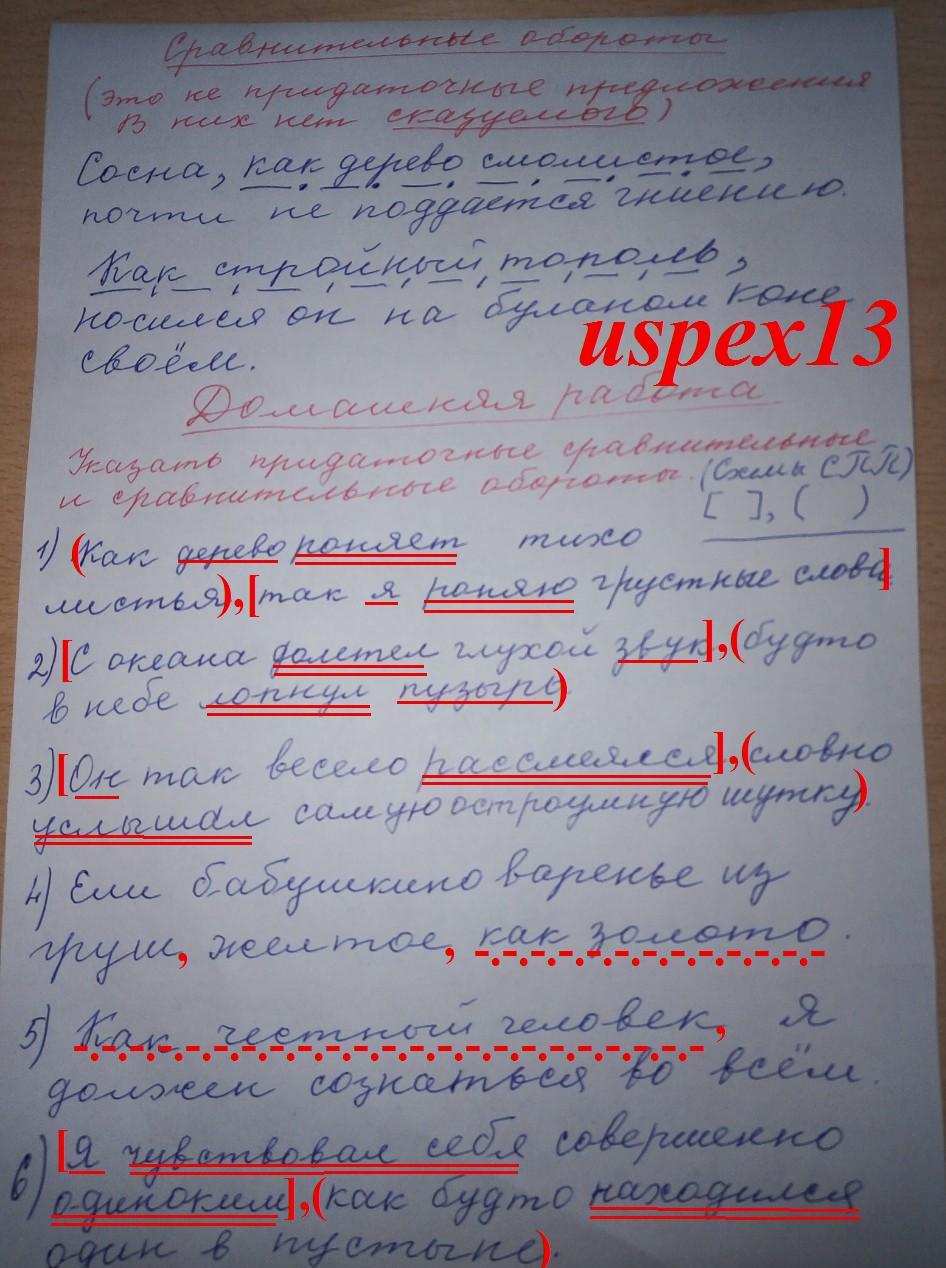 Сравнительные обороты
(Это не придаточные предложения
В них нет сказуемого)
Сосна, как дерево смолистое,
почти не поддаётся гниению.
Как стройный тополь,
носился он на буланом коне
своём.
uspex13
Домашняя работа
Указать придаточные сравнительные
и сравнительные обороты. (Схемы СПП)
[ ], ( )
1) (Как дерево роняет тихо
листья), [так я роняю грустные слова]
2) [С океана долетел глухой звук], (будто
в небе лопнул пузырь)
3) [Он так весело рассмеялся], (словно
услышал самую остроумную шутку).
4) Ели бабушкино варенье из
груш, желтое, как золото.
5) Как честный человек, я
должен сознаться во всём.
6) [Я чувствовал себя совершенно
одиноким], (как будто находился
один в пустыне).